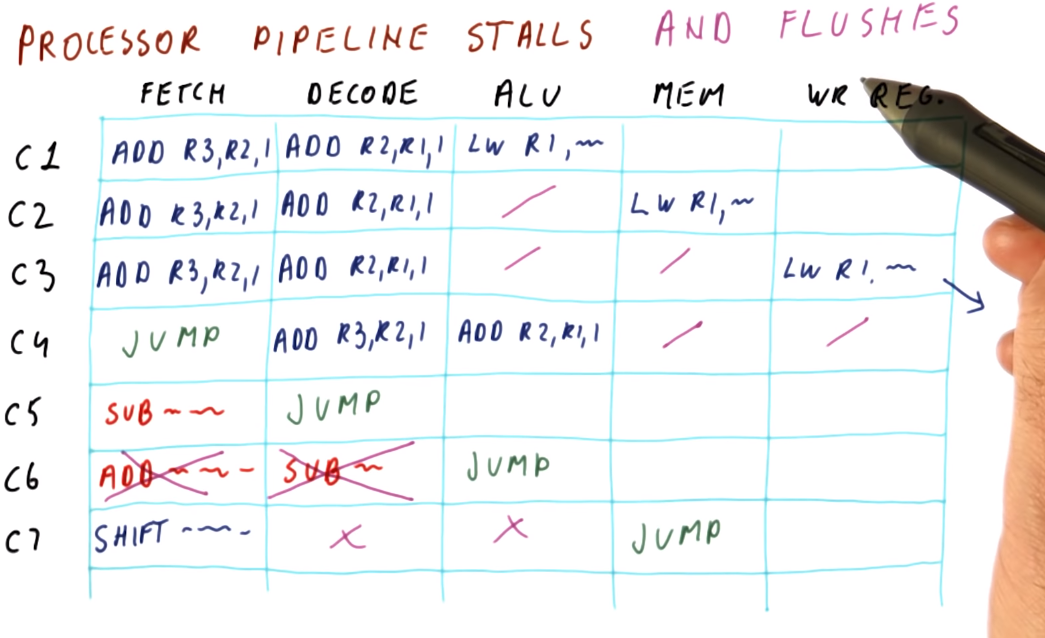 PROCESSOR PIPELINE STALLS AND FLUSHES
FETCH DECODE ALU MEM WR REG.
C1 ADD R3,R2,1 ADD R2,R1,1 LW R1,~
C2 ADD R3,R2,1 ADD R2,R1,1 / LW R1,~
C3 ADD R3,R2,1 ADD R2,R1,1 / / LW R1,~
C4 JUMP ADD R3,R2,1 ADD R2,R1,1 / /
C5 SUB ~ ~ JUMP
C6 ADD ~ ~ - SUB ~ JUMP
C7 SHIFT ~~~- X X JUMP